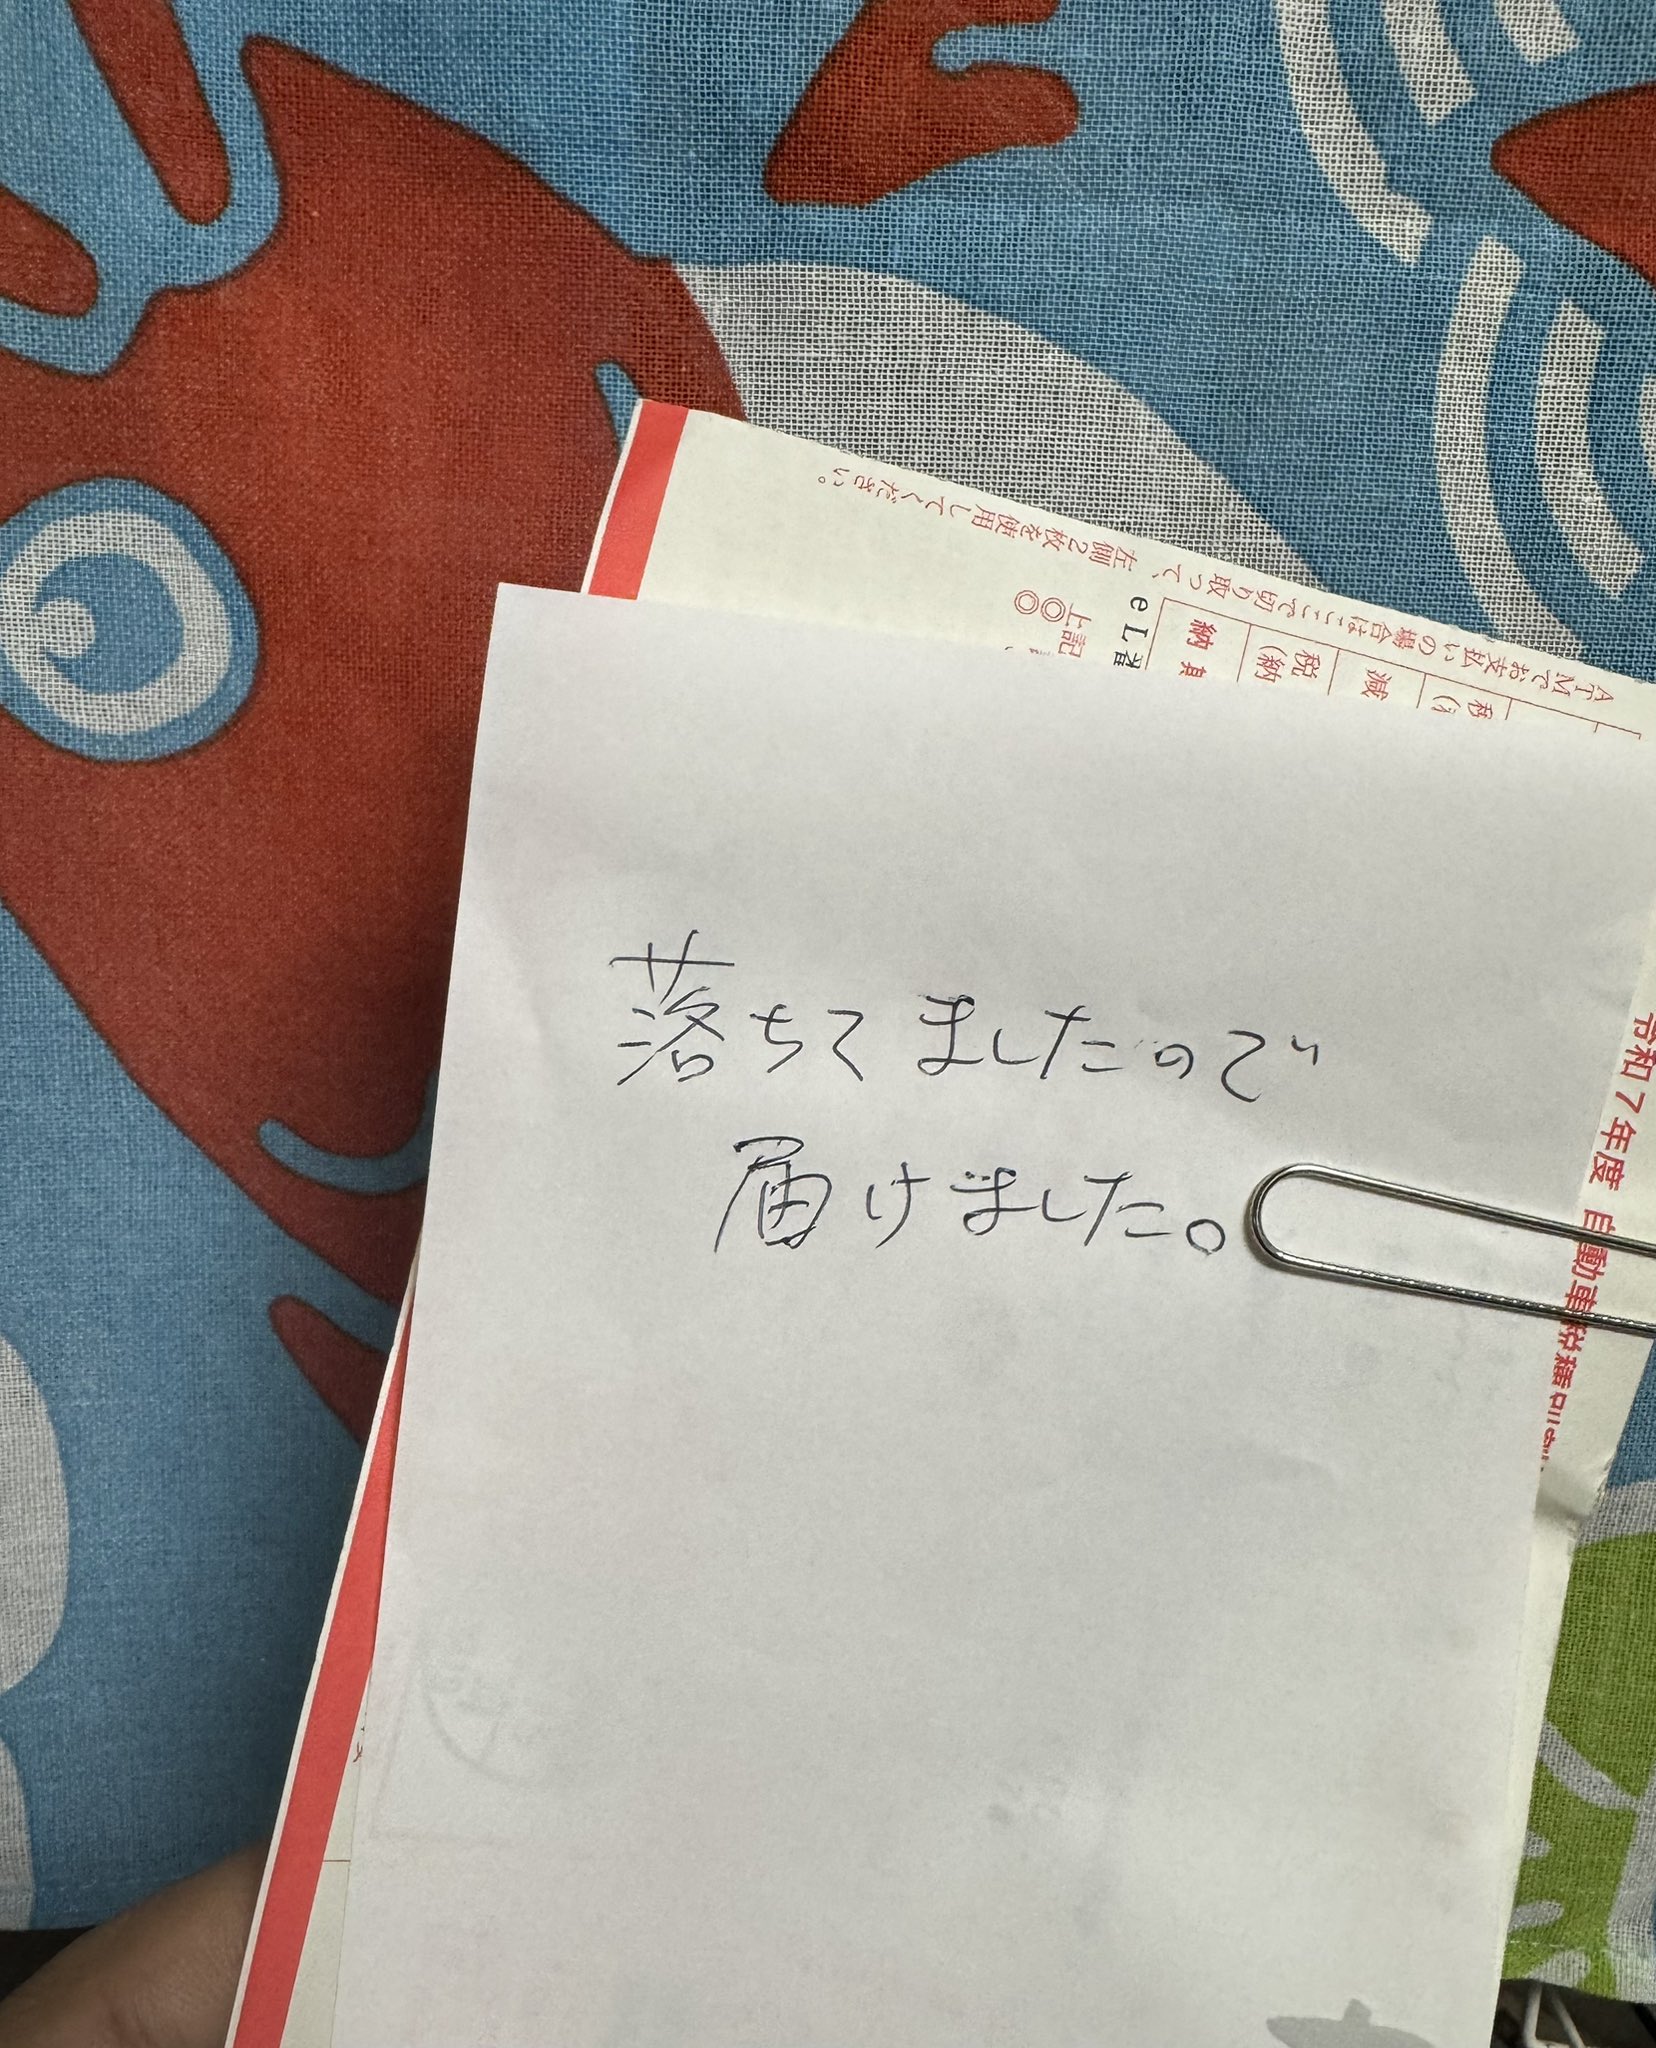 落ちてましたので
届けました。
ATMでお支払いの場合はここで切り取って、左側2枚を使用してください。
上記
◎◎
eL番
納期
税(納
減
令和7年度 自動車税種別割